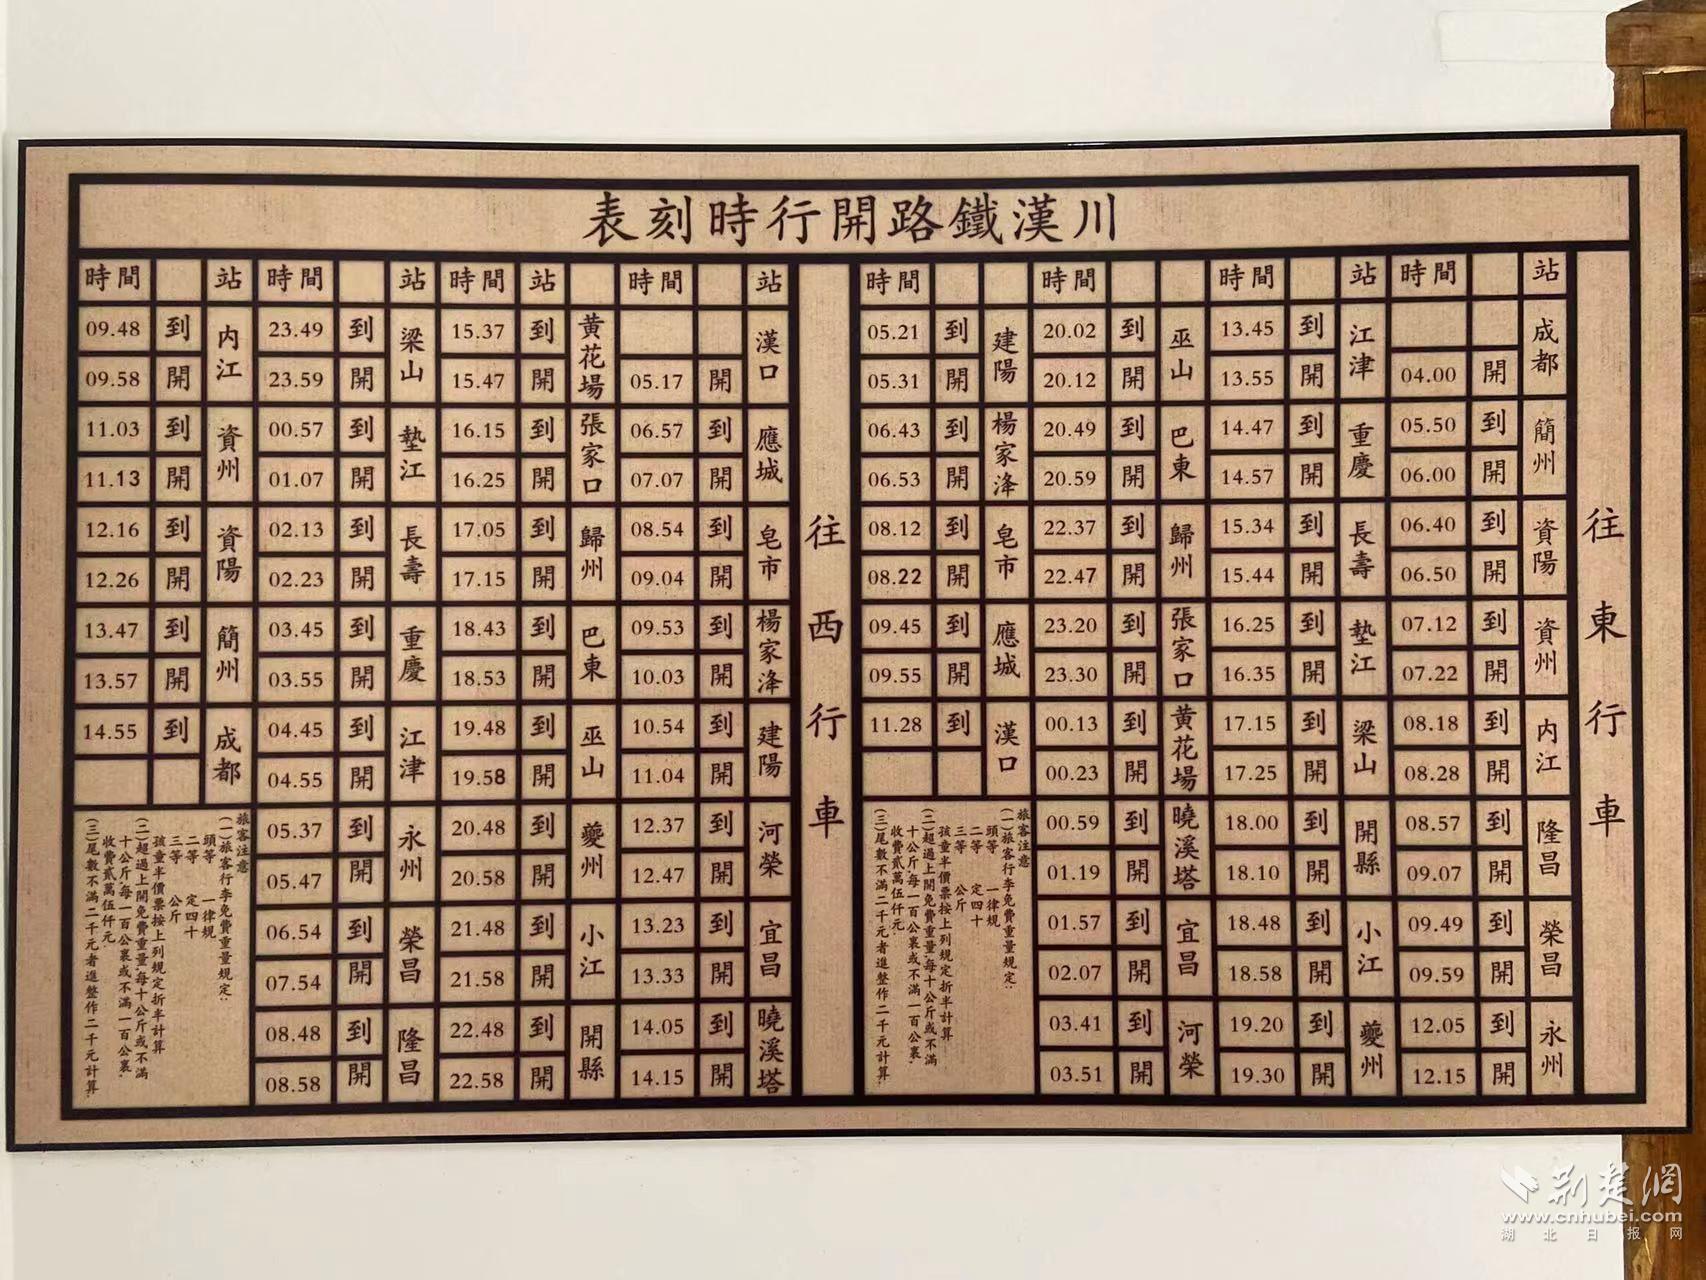 川漢鐵路開行時刻表
往東行車
站 時間
成都
開 04.00
簡州
到 05.50
開 06.00
資陽
到 06.40
開 06.50
資州
到 07.12
開 07.22
内江
到 08.18
開 08.28
隆昌
到 08.57
開 09.07
榮昌
到 09.49
開 09.59
永州
到 12.05
開 12.15
站 時間
江津
到 13.45
開 13.55
重慶
到 14.47
開 14.57
長壽
到 15.34
開 15.44
墊江
到 16.25
開 16.35
梁山
到 17.15
開 17.25
開縣
到 18.00
開 18.10
小江
到 18.48
開 18.58
夔州
到 19.20
開 19.30
時間
巫山
到 20.02
開 20.12
巴東
到 20.49
開 20.59
歸州
到 22.37
開 22.47
張家口
到 23.20
開 23.30
黄花場
到 00.13
開 00.23
曉溪塔
到 00.59
開 01.19
宜昌
到 01.57
開 02.07
河榮
到 03.41
開 03.51
時間
建陽
到 05.21
開 05.31
楊家洚
到 06.43
開 06.53
皂市
到 08.12
開 08.22
應城
到 09.45
開 09.55
漢口
到 11.28
旅客注意
(一)旅客行李免費重量規定:
頭等 一律規
二等 定四十
三等 公斤
孩童半價票按上列規定折半計算
(二)超過上開免費重量,每十公斤或不滿
十公斤,每一百公裏或不滿一百公裏,
收費貳萬伍仟元.
(三)尾數不滿二千元者進整作二千元計算.
往西行車
站 時間
漢口
開 05.17
應城
到 06.57
開 07.07
皂市
到 08.54
開 09.04
楊家洚
到 09.53
開 10.03
建陽
到 10.54
開 11.04
河榮
到 12.37
開 12.47
宜昌
到 13.23
開 13.33
曉溪塔
到 14.05
開 14.15
站 時間
黄花場
到 15.37
開 15.47
張家口
到 16.15
開 16.25
歸州
到 17.05
開 17.15
巴東
到 18.43
開 18.53
巫山
到 19.48
開 19.58
夔州
到 20.48
開 20.58
小江
到 21.48
開 21.58
開縣
到 22.48
開 22.58
站 時間
梁山
到 23.49
開 23.59
墊江
到 00.57
開 01.07
長壽
到 02.13
開 02.23
重慶
到 03.45
開 03.55
江津
到 04.45
開 04.55
永州
到 05.37
開 05.47
榮昌
到 06.54
開 07.54
隆昌
到 08.48
開 08.58
站 時間
内江
到 09.48
開 09.58
資州
到 11.03
開 11.13
資陽
到 12.16
開 12.26
簡州
到 13.47
開 13.57
成都
到 14.55
旅客注意
(一)旅客行李免費重量規定:
頭等 一律規
二等 定四十
三等 公斤
孩童半價票按上列規定折半計算
(二)超過上開免費重量,每十公斤或不滿
十公斤,每一百公裏或不滿一百公裏,
收費貳萬伍仟元.
(三)尾數不滿二千元者進整作二千元計算.
荆楚網
www.cnhubei.com
湖北日报网